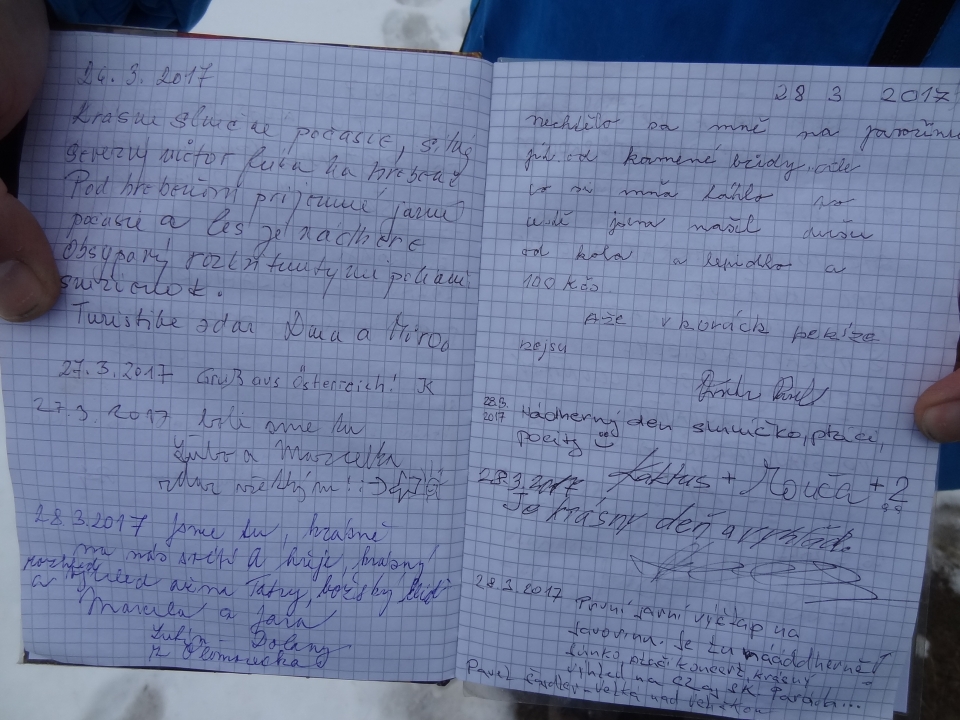 24. 3. 2017
Krásne slnečné počasie, silný
severný vietor fúka na hrebeni
Pod hrebeňom príjemné jarné
počasie a les je nádherne
obsypaný
snežienok.
Turistike zdar a Miro
27.3.2017 Gruß aus Österreich! K
27.3. 2017 boli sme tu
Ľubo a Marcelka
zdar všetkým!
28.3.2017 Jsme tu, krásně
na nás svítí a hřeje, krásný
a výhled Tatry, božský klid
Marcela a Jara
z Olomoucka
28 3 2017
nechtělo sa mně na javořinu
od kamené búdy, ale
mňa táhlo
jsem našel dušu
od kola a lepidlo a
100 Kčs.
Aže v horách peníze
nejsu
28.3.
2017 Nádherný den sluníčko, ptáci,
pocity
28.3.2017 Kaktus + +2
Je krásny deň a výhľad.
28.3.2017 První jarní výstup na
Javorinu. Je tu náááddherně!
ptačí koncert, krásný
výhled na CZ aj SK Paráda...
Pavel nad Veličkou